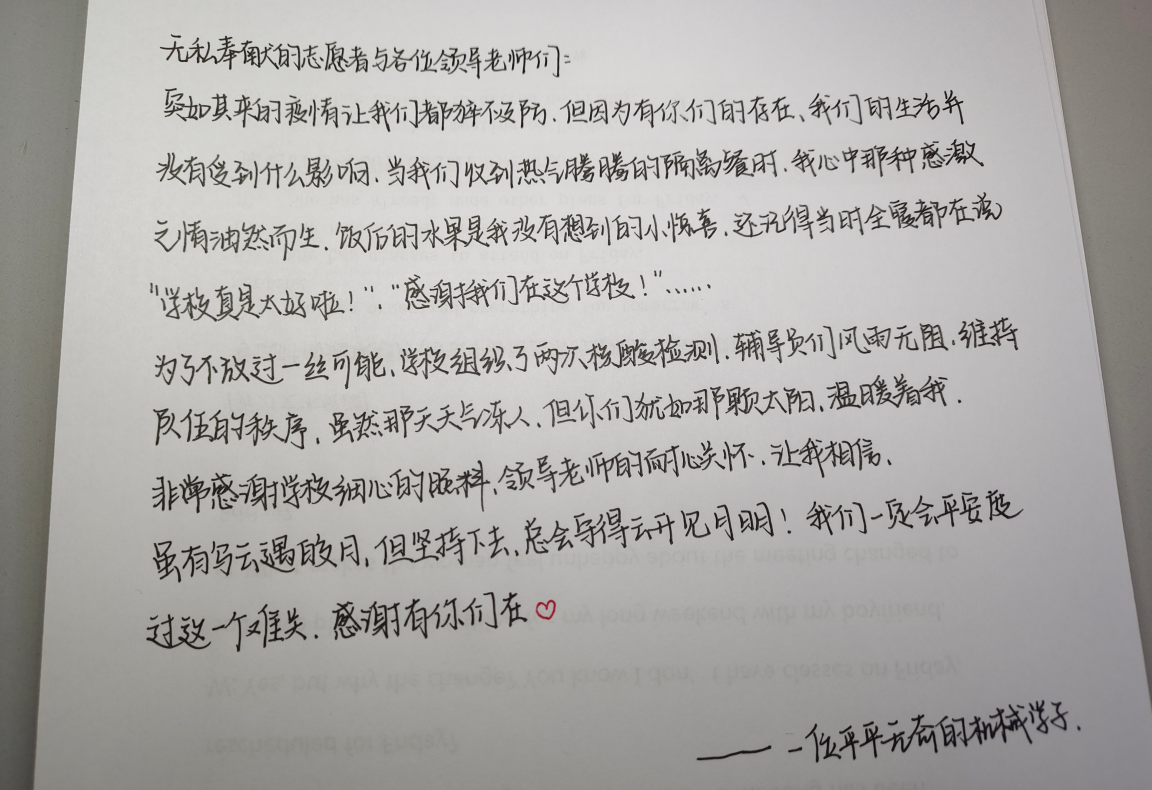 无私奉献的志愿者与各位领导老师们:
突如其来的疫情让我们都猝不及防,但因为有你们的存在、我们的生活并
没有受到什么影响.当我们收到热气腾腾的隔离餐时,我心中那种感激
之情油然而生.饭后的水果是我没有想到的小惊喜,还记得当时全寝都在说
"学校真是太好啦!"、"感谢我们在这个学校!"……
为了不放过一丝可能,学校组织了两次核酸检测,辅导员们风雨无阻,维持
队伍的秩序,虽然那天天气冻人,但你们犹如那颗太阳,温暖着我.
非常感谢学校细心的照料,领导老师的耐心关怀,让我相信,
虽有乌云遇皎月,但坚持下去,总会守得云开见月明!我们一定会平安度
过这一个难关.感谢有你们在♡
——一位平平无奇的机械学子.
rescheduled for Friday?
W: Yes, but why the change? You know I don't have classes on Friday.
my long weekend with my boyfriend.
unhappy about the meeting changed to